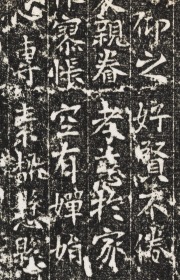 仰之好賢不倦
親眷孝慈於家
寮悵空有嬋娟
專素懸